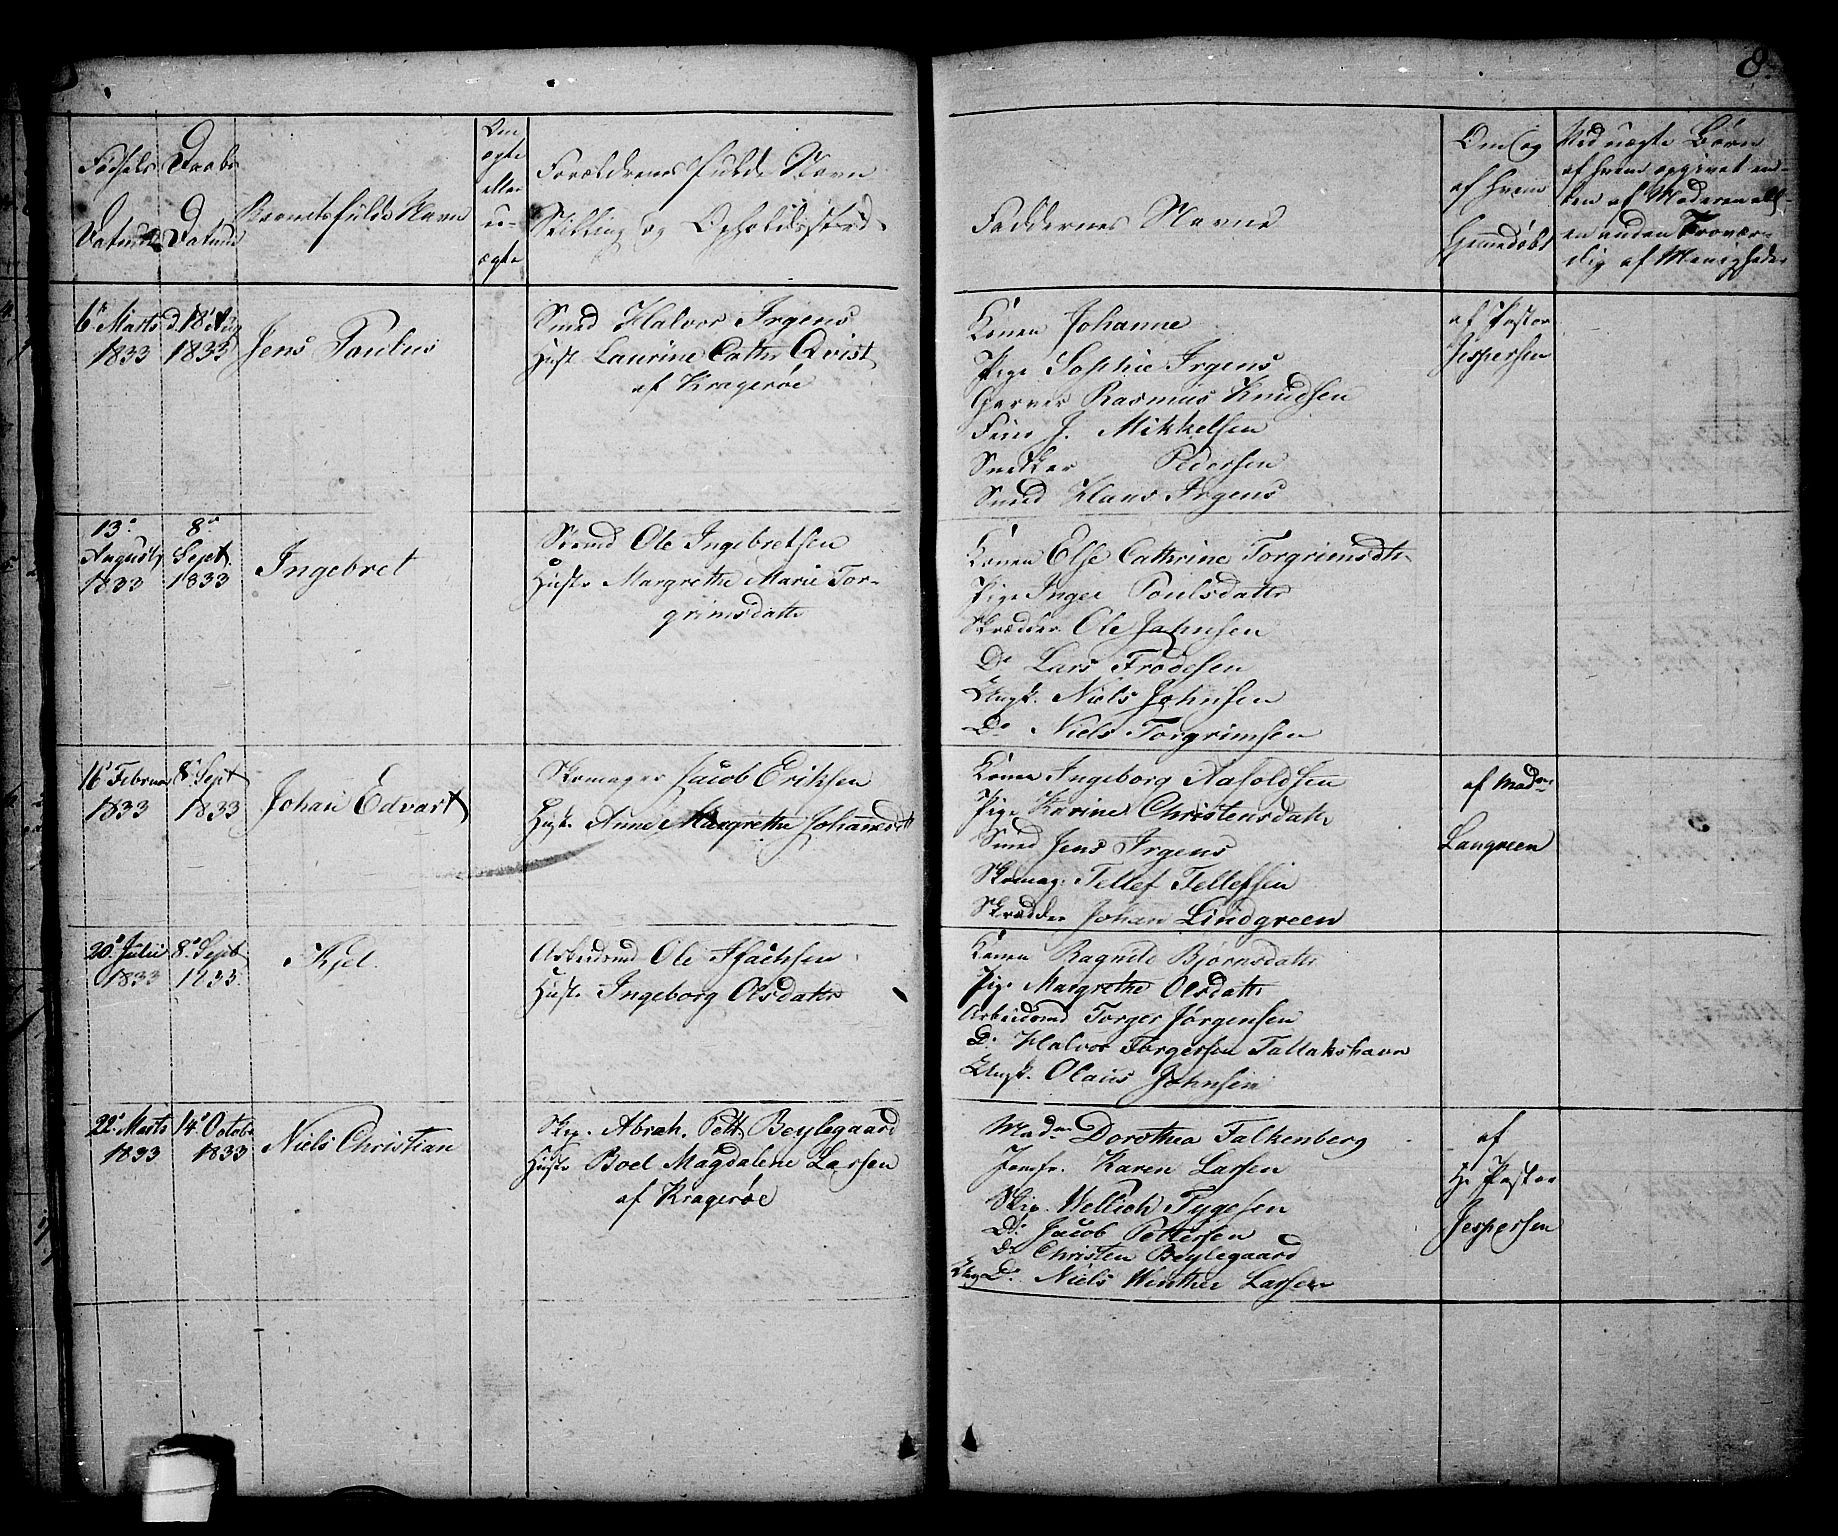 8
Fødsels
Datum
Daabs
Datum
Barnets fulde Navn
Om
ægte
eller
u-
ægte
Forældrenes fulde Navn
Stilling og Opholdssted
Faddernes Navne
Om og
af hvem
hjemmedøbt
Ved uægte Børn
af hvem opgivet en-
ten af Moderen ell.
en anden Trovær-
dig af Menigheden
6te Marts
1833
d. 18 Aug
1833
Jens Paulus
Smed Halvor Irgens
Hust. Laurine Cathr Qvist
af Kragerøe
Konen Johanne
Pige Sophie Irgens
Garver Rasmus Knudsen
J. Mikkelsen
Snedker Pedersen
Smed Klaus Irgens
af Pastor
Jespersen
13de
August
1833
8de
Sept.
1833
Ingebret
Sømd Ole Ingebretsen
Hustr Margrethe Marie Tor-
grimsdattr
Konen Else Cathrine Torgrimsdtr
Pige Inger Poulsdattr
Skrædder Ole Johnsen
Do Lars Frodesen
Ungk. Niels Johnsen
Do Niels Torgrimsen
16de Februar
1833
8de Sept
1833
Johan Edvart
Skomager Jacob Eriksen
Hust. Anne Margrethe Johannesdttr
Konen Ingeborg Aasoldsen
Pige Karine Christensdattr
Smed Jens Irgens
Skomag. Tellef Tellefsen
Skrædder Johan Lindgreen
af Madme
Langreen
20de Julii
1833
8de Sept
1833
Kjel.
Arbeidsmd Ole Isachsen
Hustr Ingeborg Olsdattr
Konen Ragnild Bjørnsdattr
Pige Margrethe Olsdattr
Arbeidsmd Torger Jørgensen
Do Halvor Torgersen Tallakshavn
Ungk. Olaus Johnsen
22de Marts
1833
14de Octobr
1833
Niels Christian
Skip. Abrah. Pett. Beylegaard
Hustr Boel Magdalene Larsen
af Kragerøe
Madme Dorothea Falkenberg
Jomfr. Karen Larsen
Skip. Wellich Tygesen
Do Jacob Pettersen
Do Christen Beylegaard
Ungk Do. Niels Winther Larsen
af
Hr Pastor
Jespersen